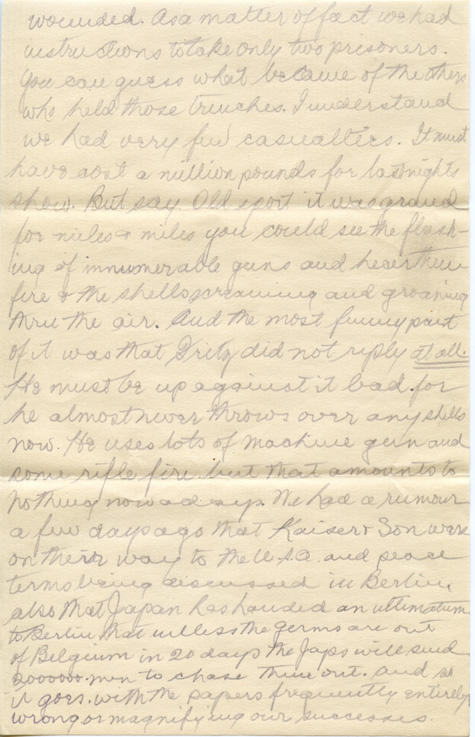 wounded. As a matter of fact we had
instructions to take only two prisoners.
You can guess what became of the others
who held those trenches. I understand
we had very few casualties. It must
have cost a million pounds for last nights
show. But say Old sport it was grand
for miles & miles you could see the flash-
ing of innumerable guns and hear them
fire & the shells screaming and groaning
thru the air. And the most funny part
of it was that Fritz did not reply at all.
He must be up against it bad. for
he almost never throws over any shells
now. He uses lots of machine gun and
some rifle fire but that amounts to
nothing now a days. We had a rumour
a few days ago that Kaiser & Son were
on their way to the U.S.A. and peace
terms being discussed in Berlin,
also that Japan has handed an ultimatum
to Berlin that unless the Germs are out
of Belgium in 20 days the Japs will send
2000000 men to chase them out. and so
it goes. with the papers frequently entirely
wrong or magnifying our successes.